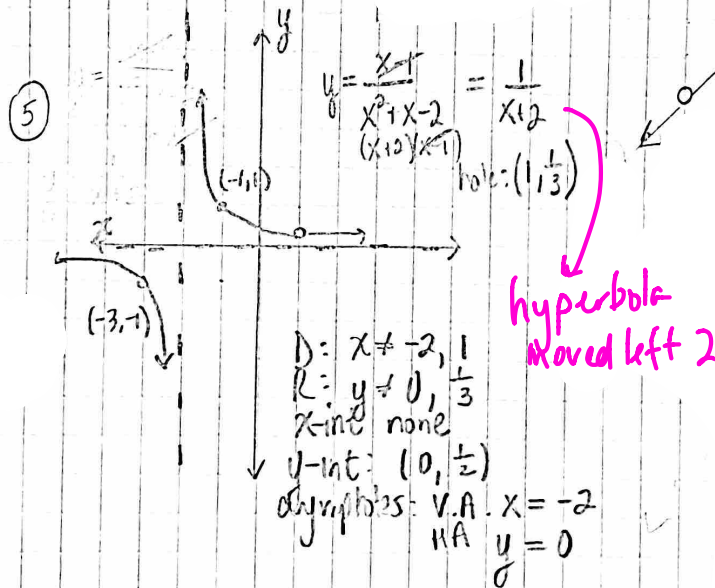 y
5
y = x-1 / x²+x-2 = 1 / x+2
(x+2)(x-1)
hole: (1, 1/3)
(-1,1)
x
(-3,-1)
hyperbola
moved left 2
D: x ≠ -2, 1
R: y ≠ 0, 1/3
x-int none
y-int: (0, 1/2)
asymptotes: V.A. x = -2
HA y = 0